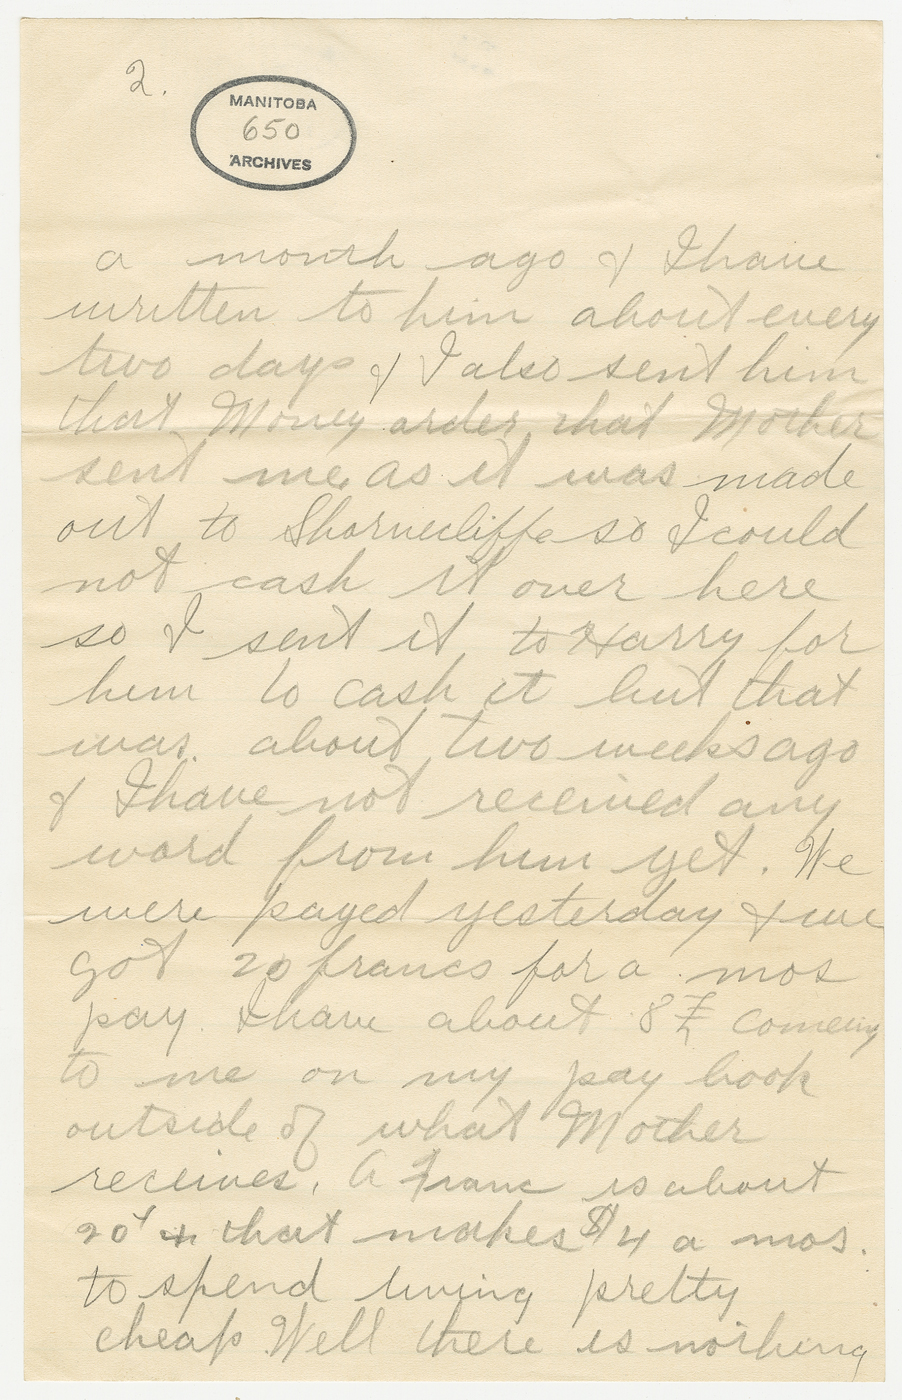 2.
MANITOBA
650
ARCHIVES
a month ago & I have
written to him about every
two days & I also sent him
that Money order that Mother
sent me as it was made
out to Shornecliffe so I could
not cash it over here
so I sent it to Harry for
him to cash it but that
was about two weeks ago
& I have not received any
word from him yet. We
were payed yesterday & we
got 20 francs for a mos
pay. I have about 8 £ comeing
to me on my pay book
outside of what Mother
receives. A Franc is about
20¢ & that makes $4 a mos.
to spend living pretty
cheap. Well there is nothing